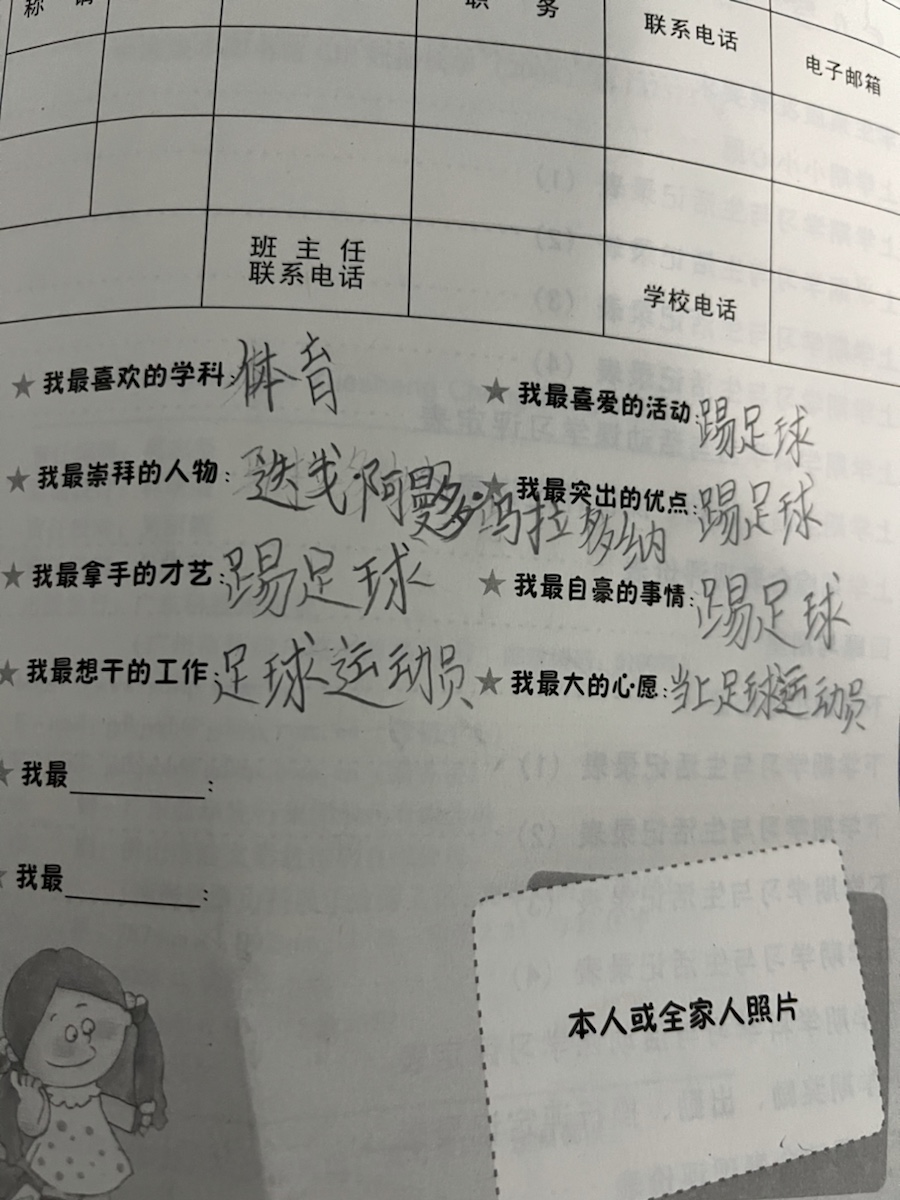 称 谓
职 务
联系电话
电子邮箱
班 主 任
联系电话
学校电话
★我最喜欢的学科:体育
★我最喜爱的活动:踢足球
★我最崇拜的人物:迭戈·阿曼多·马拉多纳
★我最突出的优点:踢足球
★我最拿手的才艺:踢足球
★我最自豪的事情:踢足球
★我最想干的工作:足球运动员
★我最大的心愿:当上足球运动员
★我最______:
★我最______:
本人或全家人照片